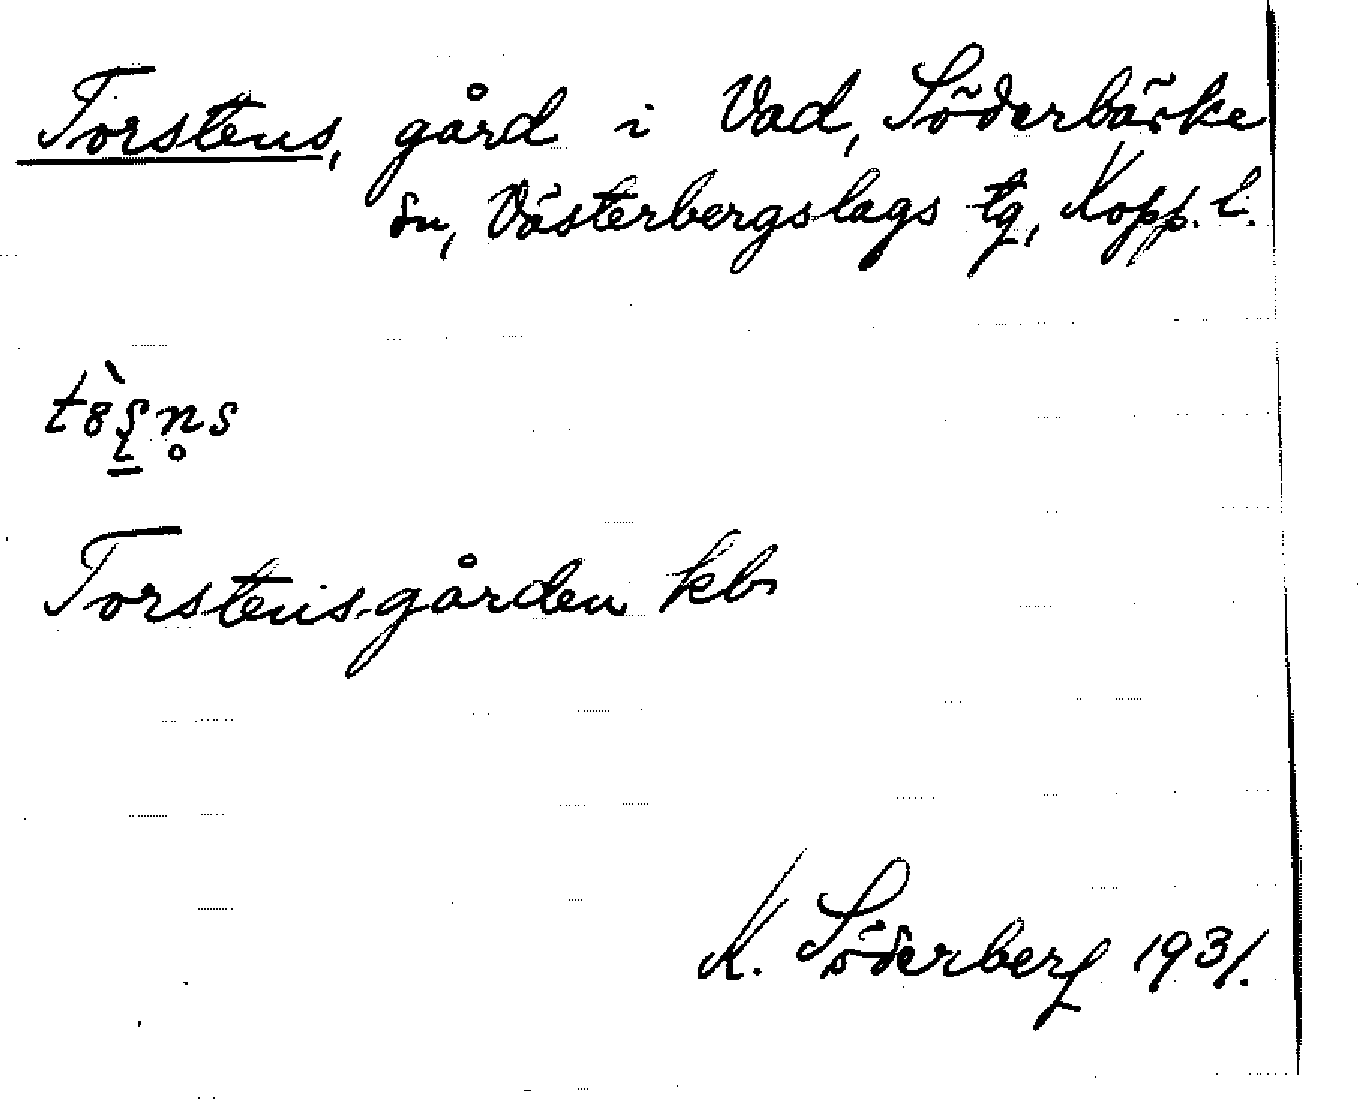 Torstens, gård i Vad, Söderbärke
sn, Västerbergslags tg, Kopp. l.
Torstensgården kb
K. Söderberg 1931.